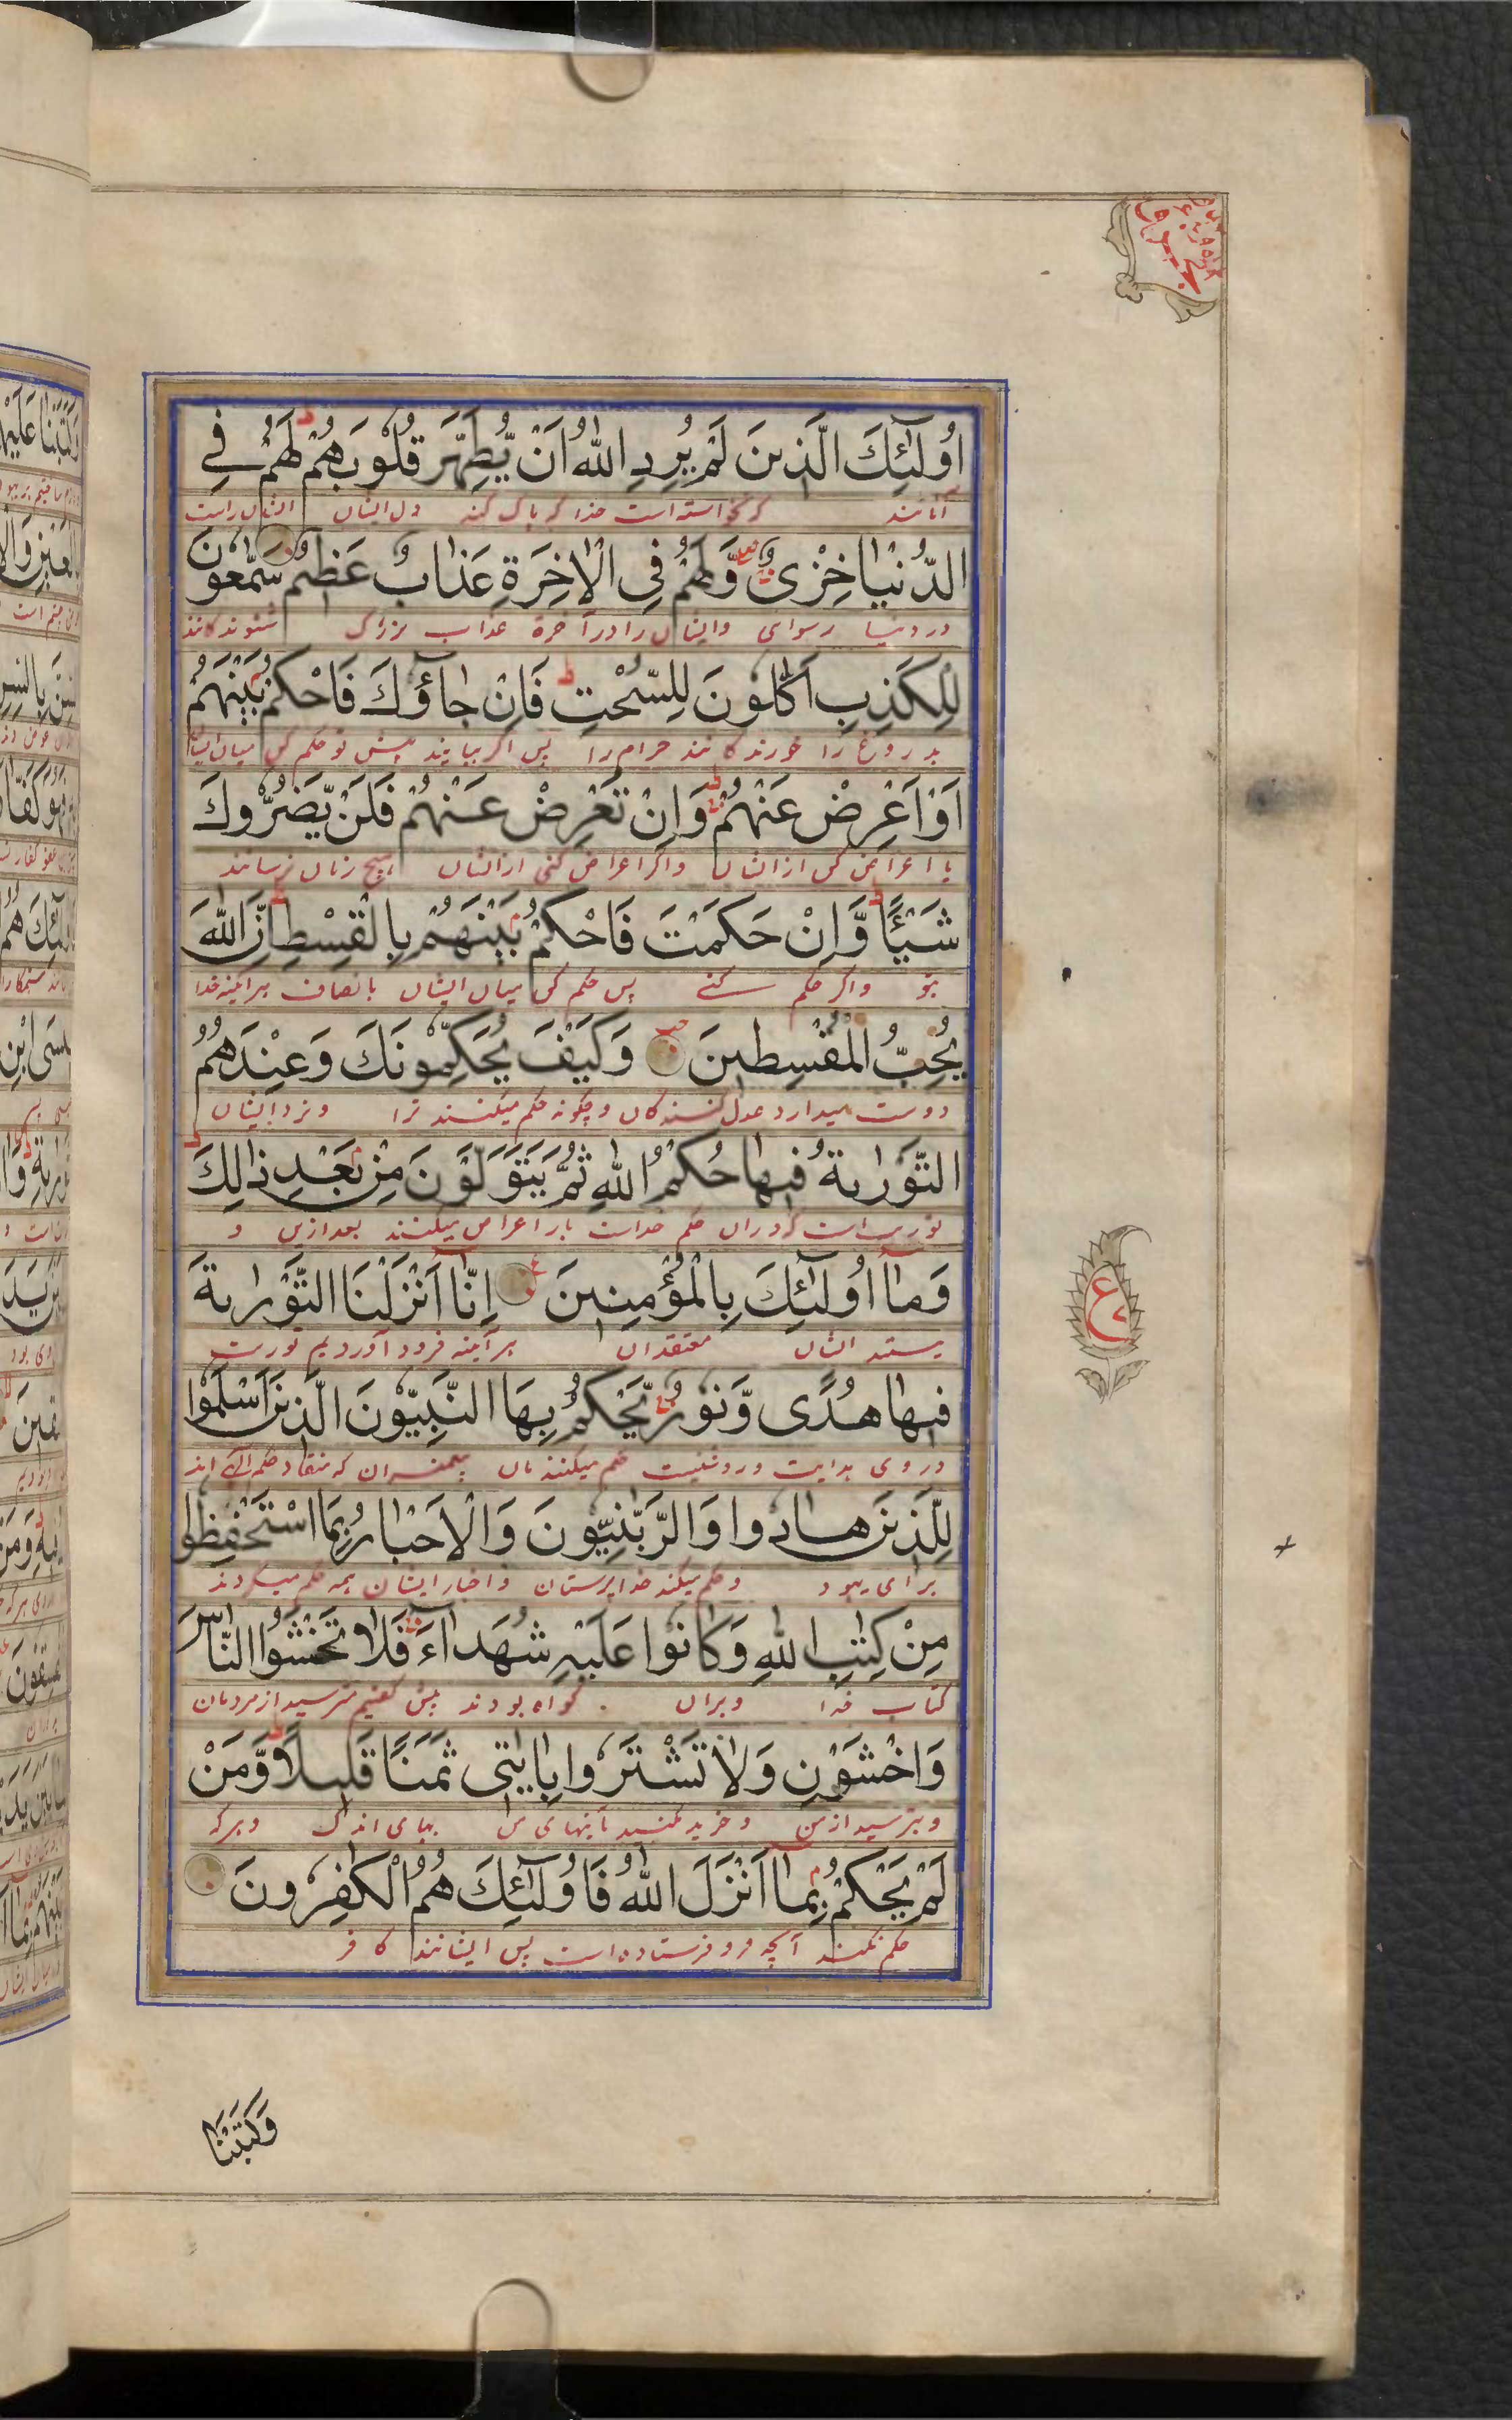 اُولٰٓئِكَ الَّذِينَ لَمْ يُرِدِ اللّٰهُ اَنْ يُّطَهِّرَ قُلُوْبَهُمْ لَهُمْ فِے
آنانند که نخواسته است خدا که پاک کند دل ایشان ایشان راست
الدُّنْيَا خِزْىٌ وَّلَهُمْ فِى الْاٰخِرَةِ عَذَابٌ عَظِيْمٌ سَمّٰعُوْنَ
در دنیا رسوای وایشان را در آخرة عذاب بزرک شنوندکانند
لِلْكَذِبِ اَكّٰلُوْنَ لِلسُّحْتِ فَاِنْ جَآؤُكَ فَاحْكُمْ بَيْنَهُمْ
دروغ را خورندکانند حرام را پس اکر بیایند پیش تو حکم کن میان ایشان
اَوْ اَعْرِضْ عَنْهُمْ وَاِنْ تُعْرِضْ عَنْهُمْ فَلَنْ يَّضُرُّوكَ
یا اعراض کن از ایشان واکر اعراض کنی از ایشان هیچ زیان نرسانند
شَيْئًا وَّاِنْ حَكَمْتَ فَاحْكُمْ بَيْنَهُمْ بِالْقِسْطِ اِنَّ اللّٰهَ
بتو واکر حکم کنے پس حکم کن میان ایشان بانصاف هرآئینه خدا
يُحِبُّ الْمُقْسِطِينَ وَكَيْفَ يُحَكِّمُوْنَكَ وَعِنْدَهُمُ
دوست میدارد عدل کنندکان وچکونه حکم میکنند ترا ونزد ایشان
التَّوْرٰىةُ فِيهَا حُكْمُ اللّٰهِ ثُمَّ يَتَوَلَّوْنَ مِنْ بَعْدِ ذٰلِكَ
توریت است که دران حکم خداست باز اعراض میکنند بعد ازین و
وَمَآ اُولٰٓئِكَ بِالْمُؤْمِنِينَ اِنَّآ اَنْزَلْنَا التَّوْرٰىةَ
نیستند ایشان معتقدان هرآئینه فرود آوردیم توریت
فِيهَا هُدًى وَّنُوْرٌ يَّحْكُمُ بِهَا النَّبِيُّوْنَ الَّذِينَ اَسْلَمُوْا
در وی هدایت وروشنیست حکم میکنند بآن پیغمبران که منقاد حکم الٰہی اند
لِلَّذِينَ هَادُوا وَالرَّبّٰنِيُّونَ وَالْاَحْبَارُ بِمَا اسْتُحْفِظُوا
برای یهود وحکم میکند خدا پرستان واحبار ایشان همه حکم میکردند
مِنْ كِتٰبِ اللّٰهِ وَكَانُوا عَلَيْهِ شُهَدَآءَ فَلَا تَخْشَوُا النَّاسَ
کتاب خدا وبران کواه بودند پس کفتیم مترسید از مردمان
وَاخْشَوْنِ وَلَا تَشْتَرُوا بِاٰيٰتِى ثَمَنًا قَلِيلًا وَّمَنْ
وبترسید از من وخرید مکنید بآیتهای من بهای اندک وهرکه
لَّمْ يَحْكُمْ بِمَآ اَنْزَلَ اللّٰهُ فَاُولٰٓئِكَ هُمُ الْكٰفِرُونَ
حکم نکند آنچه فرو فرستاده است پس ایشانند کافر
ع
وَكَتَبْنَا